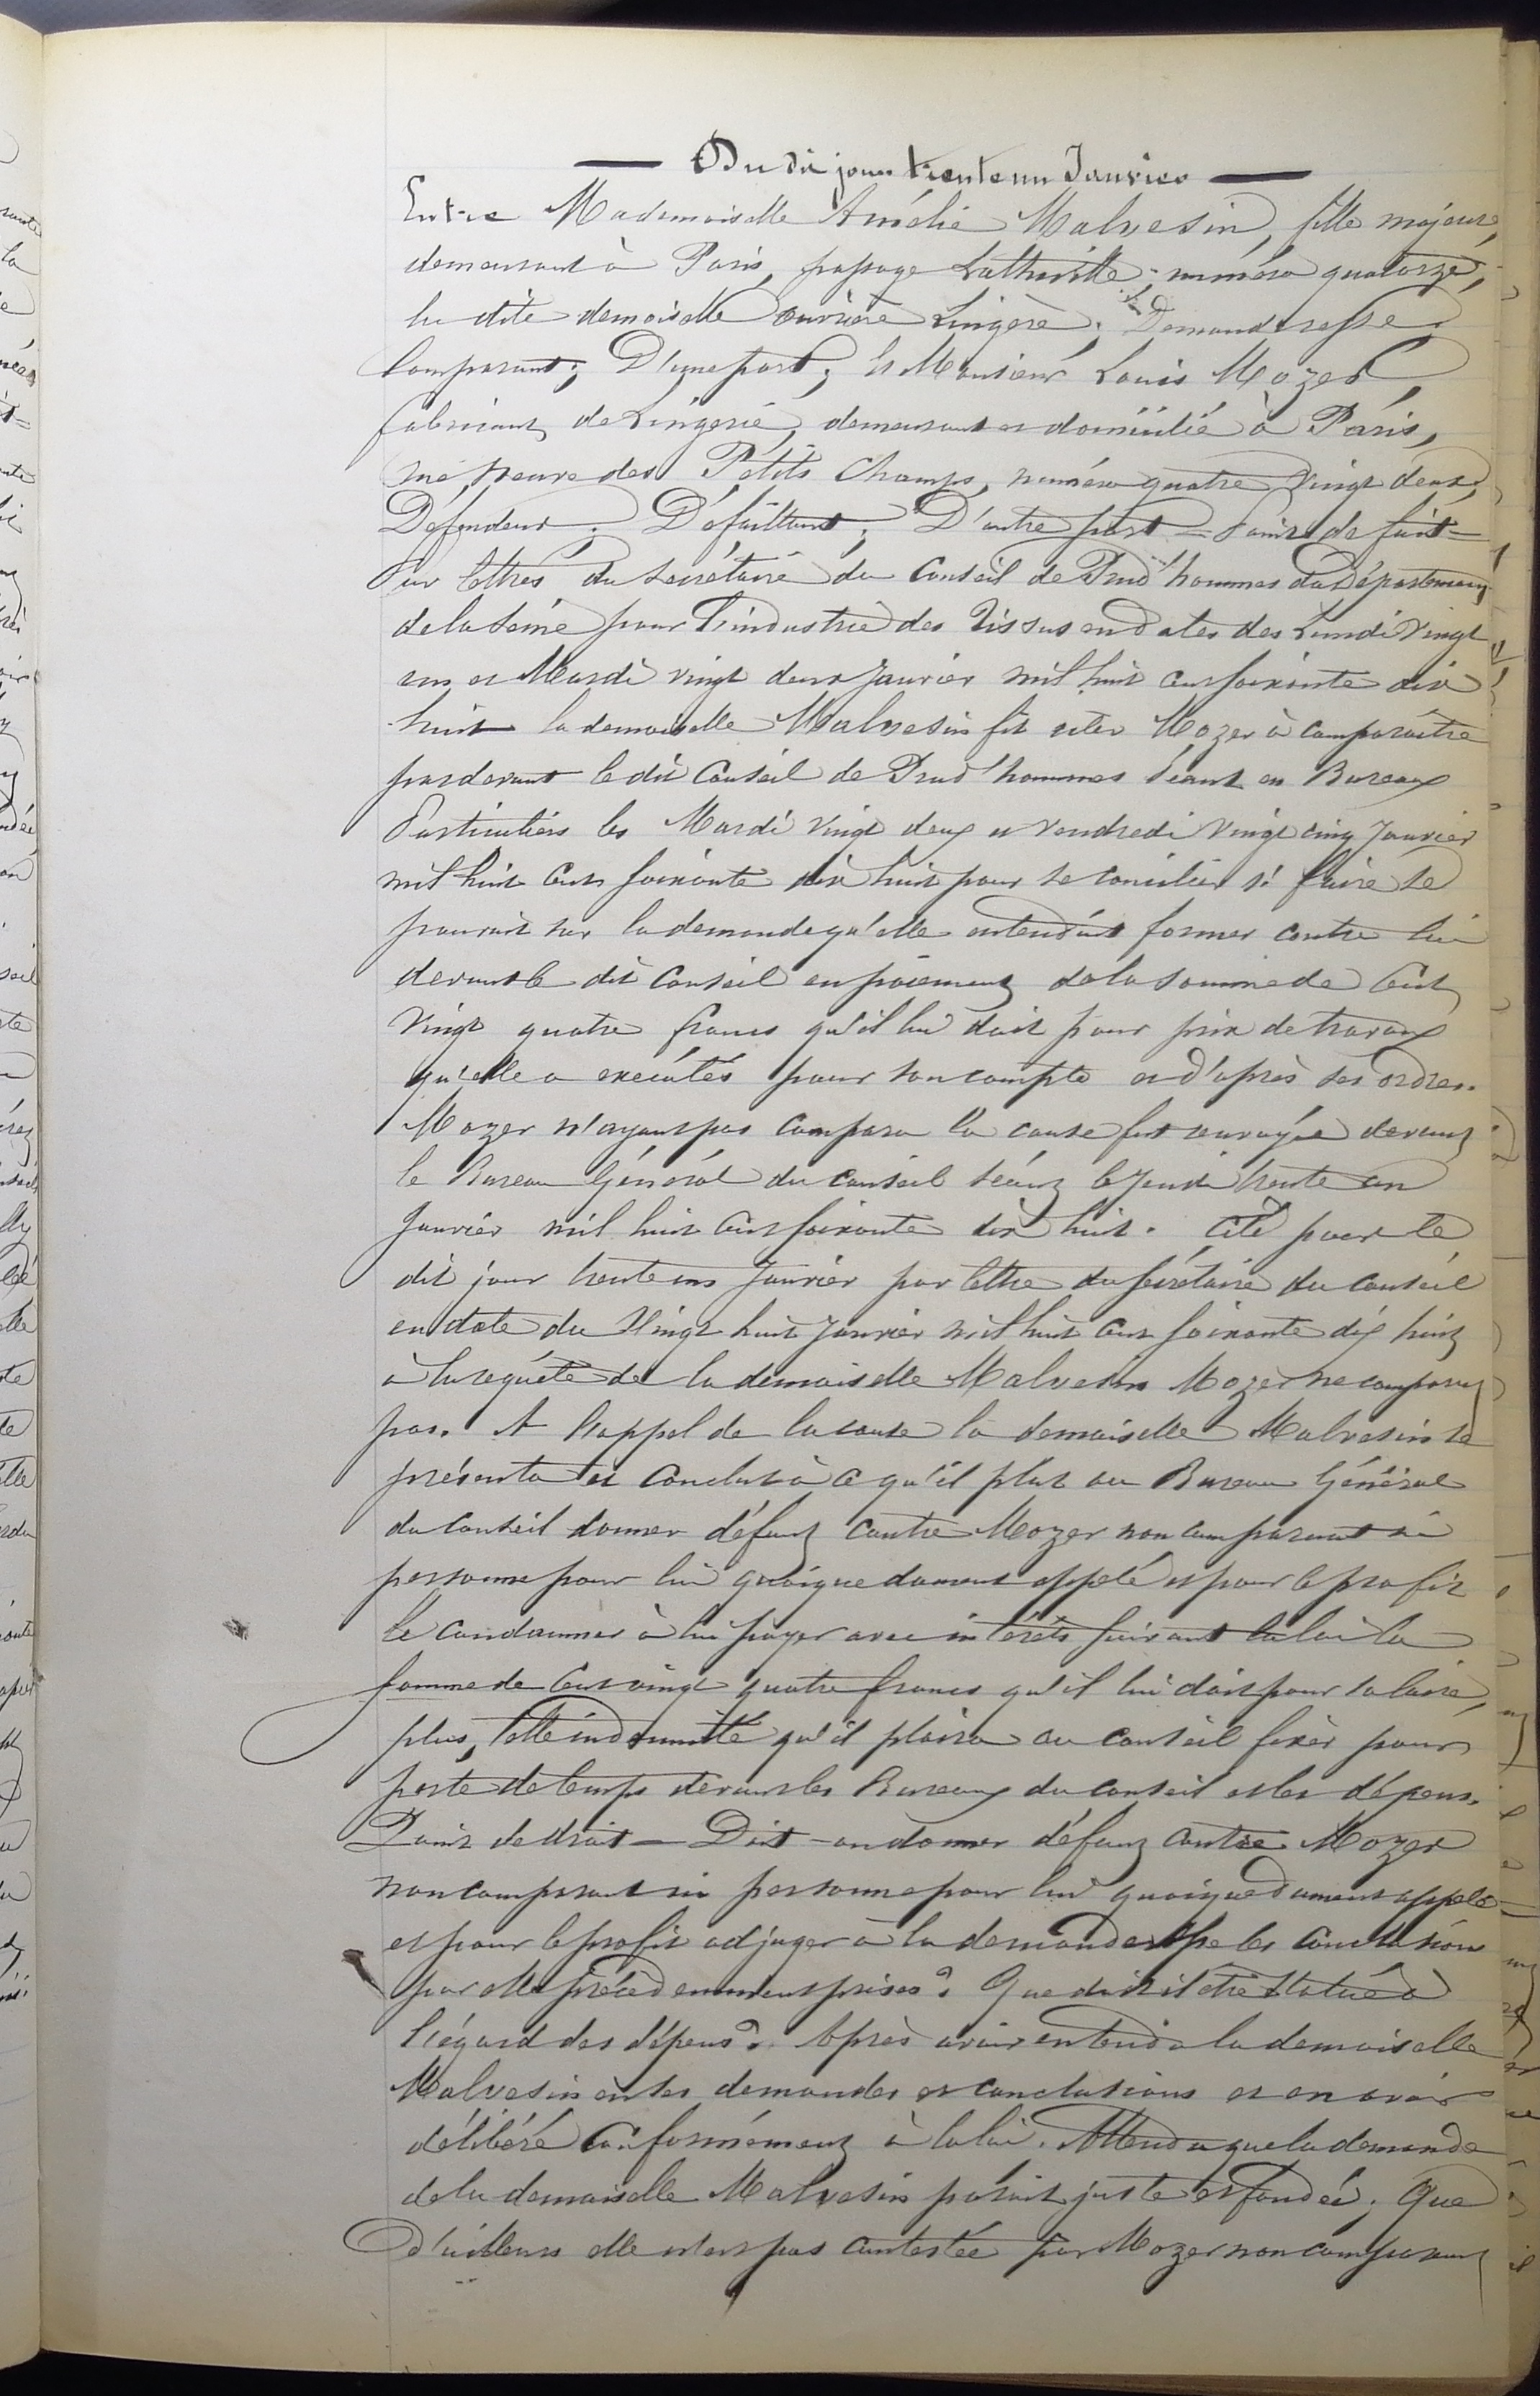 Du dit jour trente un Janvier
Entre Mademoiselle Amélie Malvesin, fille majeure,
demeurant à Paris, passage Lathuille, numéro quatorze,
la dite demoiselle ouvrière Lingère; Demanderesse;
Comparant; D'une part; Et Monsieur Louis Mozer,
fabricant de Lingerie, demeurant et domicilié à Paris,
rue neuve des Petits Champs, numéro quatre vingt deux,
Défendeur; Défaillant; D'autre part = Point de fait =
Par lettres du secrétaire du Conseil de Prud'hommes du Département
de la Seine pour l'industrie des Tissus en dates des Lundi vingt
un et Mardi vingt deux Janvier mil huit cent soixante dix
huit la demoiselle Malvesin fit citer Mozer à comparaître
pardevant le dit Conseil de Prud'hommes séant en Bureaux
Particuliers les Mardi vingt deux et vendredi vingt cinq Janvier
mil huit cent soixante dix huit pour se concilier si faire se
pouvait sur la demande qu'elle entendait former contre lui
devant le dit Conseil en paiement de la somme de Cent
vingt quatre francs qu'il lui doit pour prix de travaux
qu'elle a exécutés pour son compte et d'après ses ordres.
Mozer n'ayant pas comparu la cause fut renvoyée devant
le Bureau Général du Conseil séant le Jeudi trente un
Janvier mil huit cent soixante dix huit. Cité pour le
dit jour trente un Janvier par lettre du secrétaire du Conseil
en date du Vingt huit Janvier mil huit cent soixante dix huit
à la requête de la demoiselle Malvesin Mozer ne comparut
pas. A l'appel de la cause la demoiselle Malvesin se
présenta et conclut à ce qu'il plut au Bureau Général
du Conseil donner défaut contre Mozer non comparant ni
personne pour lui quoique dument appelé et pour le profit
le condamner à lui payer avec intérêts suivant la loi la
somme de Cent vingt quatre francs qu'il lui doit pour salaire,
plus, telle indemnité qu'il plaira au Conseil fixer pour
perte de temps devant les Bureaux du Conseil et les dépens.
Point de droit — Doit-on donner défaut contre Mozer
non comparant ni personne pour lui quoique dument appelé =
et pour le profit adjuger à la demanderesse les conclusions
par elle précédemment prises? Que doit il être statué à
l'égard des dépens? Après avoir entendu la demoiselle
Malvesin en ses demandes et conclusions et en avoir
délibéré conformément à la loi; Attendu que la demande
de la demoiselle Malvesin parait juste et fondée; Que
d'ailleurs elle n'est pas contestée par Mozer non comparant